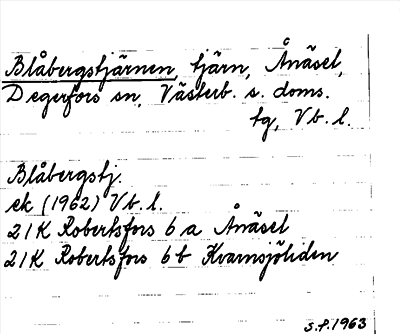 Blåbergstjärnen, tjärn, Ånäset,
Degerfors sn, Västerb. s. doms.
tg, Vb. l.
Blåbergstj.
ek (1962) Vb. l.
21K Robertsfors 6 a Ånäset
21K Robertsfors 6 b Kvarnsjöliden
S.P. 1963